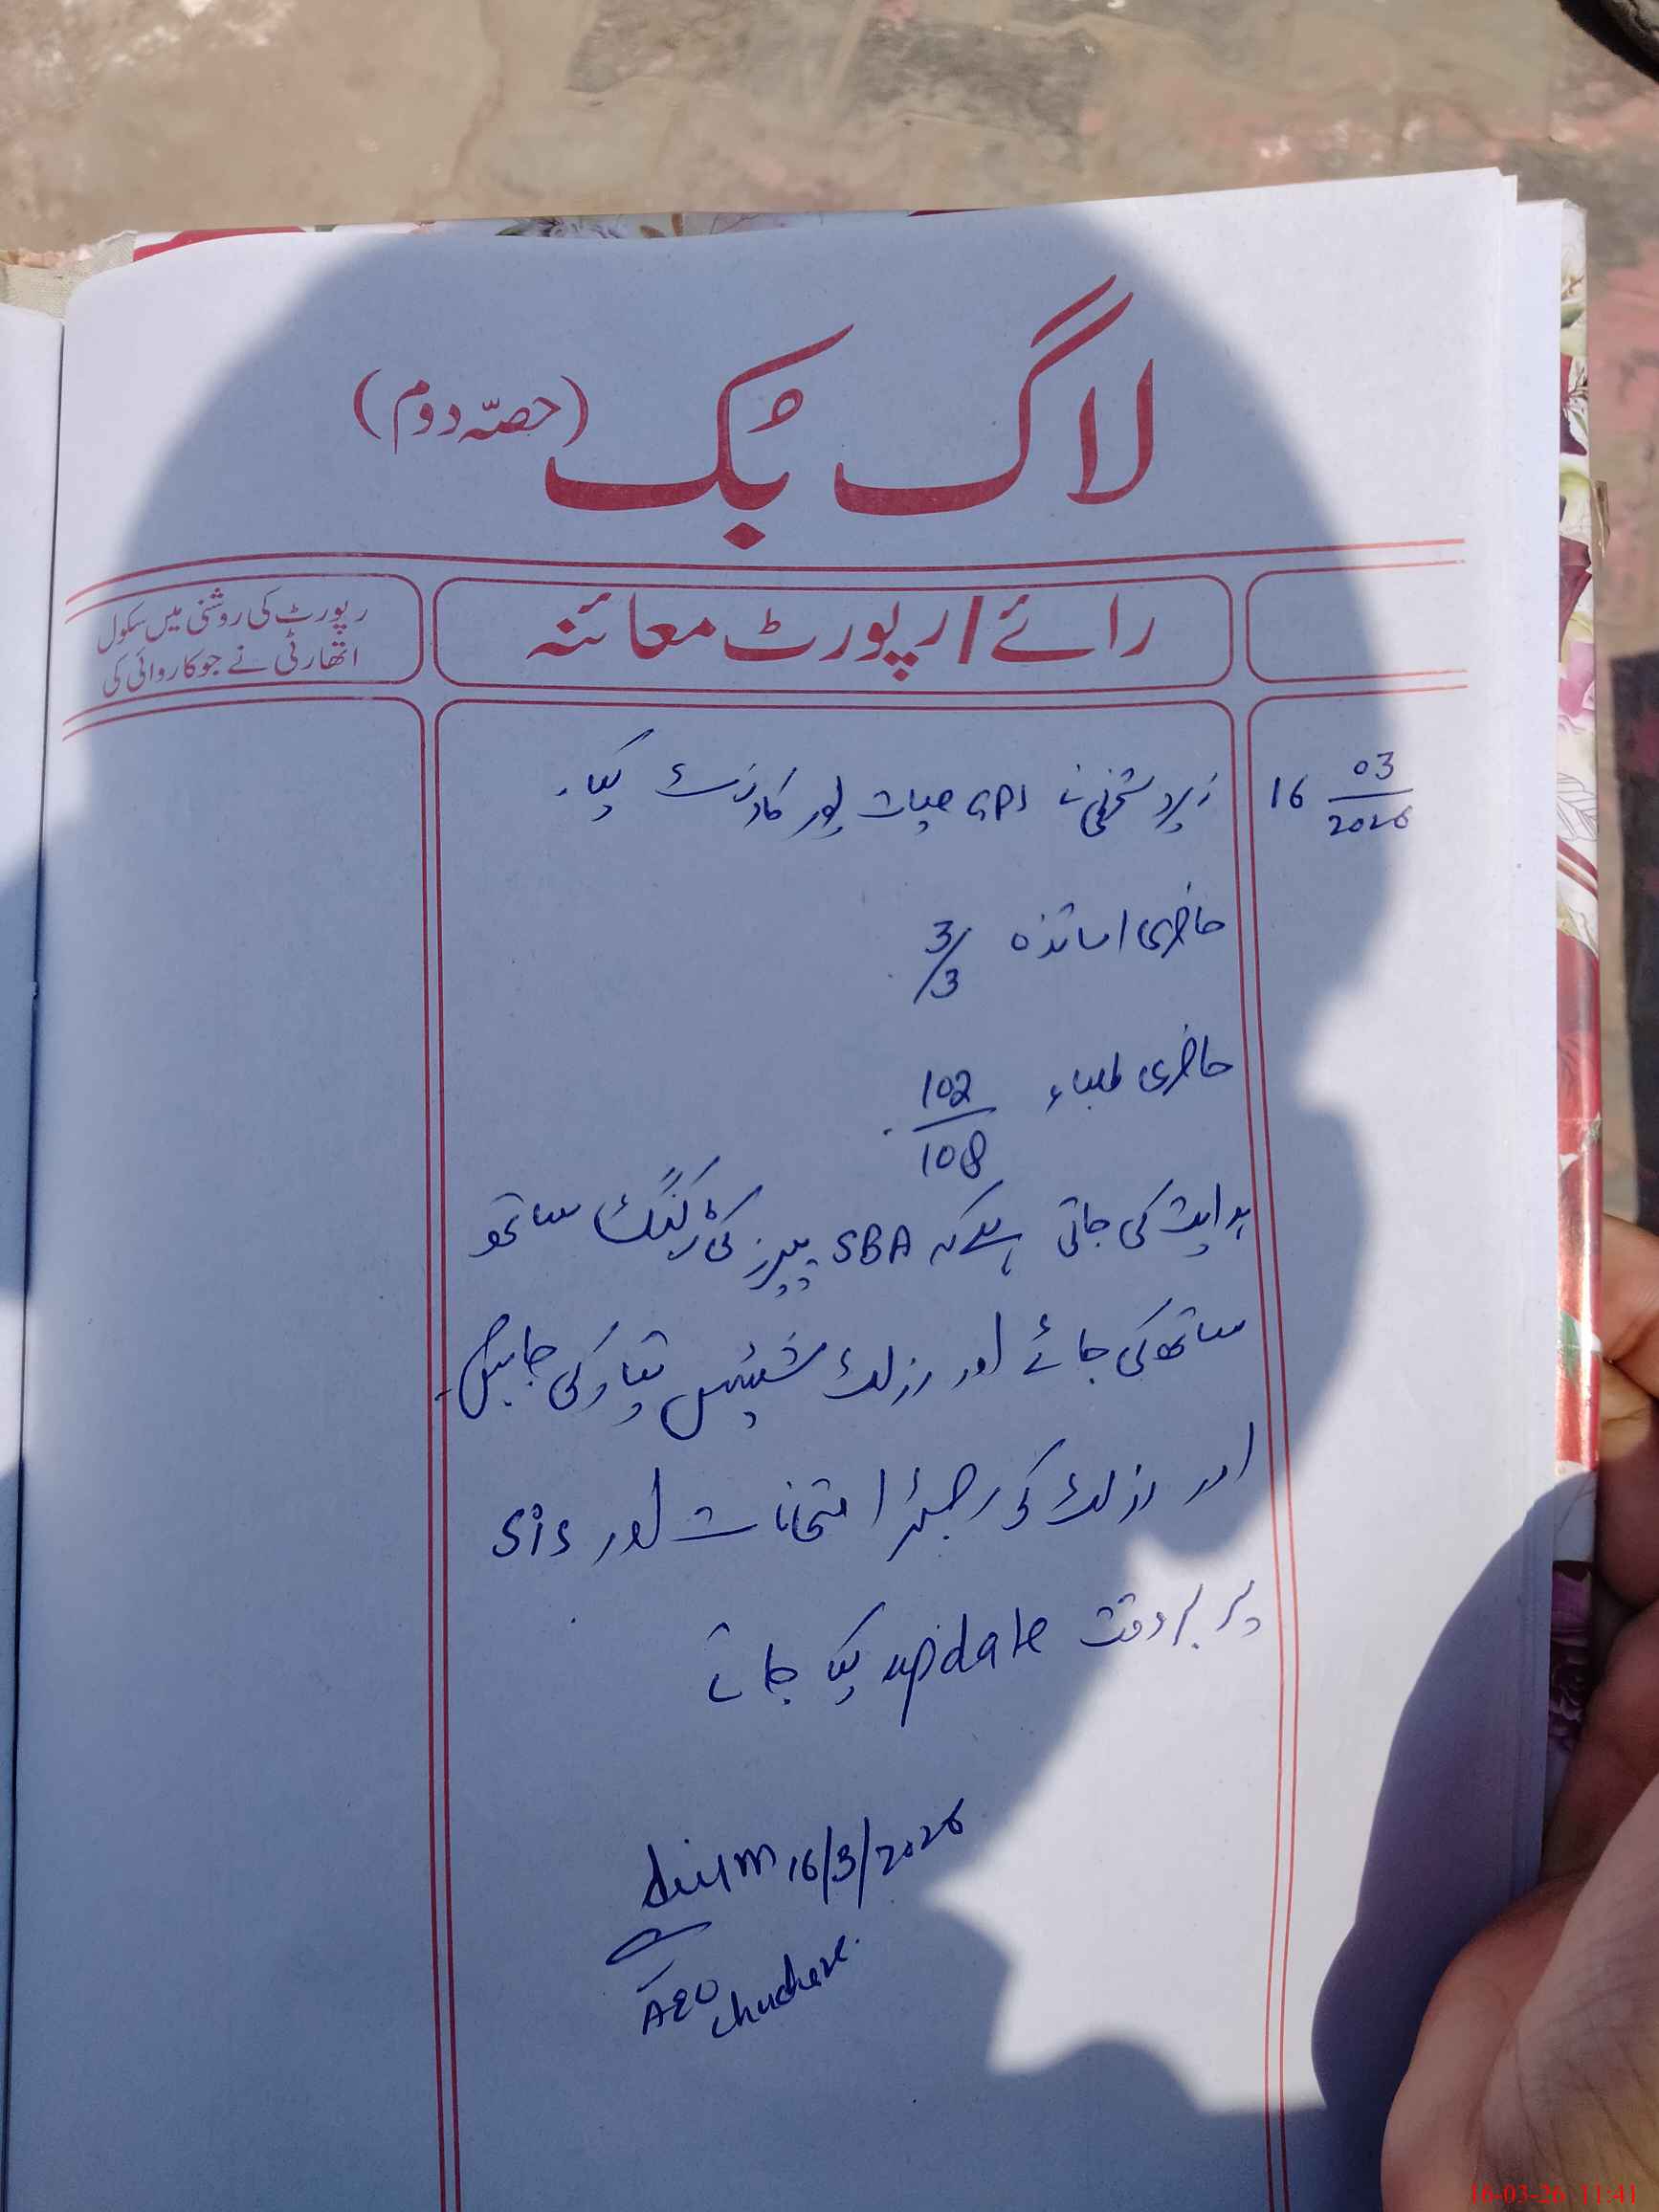 لاگ بُک (حصہ دوم)
رائے/رپورٹ معائنہ
رپورٹ کی روشنی میں سکول
اتھارٹی نے جو کاروائی کی
16 03/2026
زیر دستخطی نے GPS حیات پور کا وزٹ کیا۔
حاضری اساتذہ 3/3
حاضری طلباء 102/108
ہدایت کی جاتی ہے کہ SBA پیپرز کی مارکنگ ساتھ
ساتھ کی جائے اور رزلٹ شیٹس تیار کی جائیں۔
اور رزلٹ کو رجسٹر امتحانات اور SiS
پر بروقت update کیا جائے
16/3/2026
AEO
16-03-26 11:41